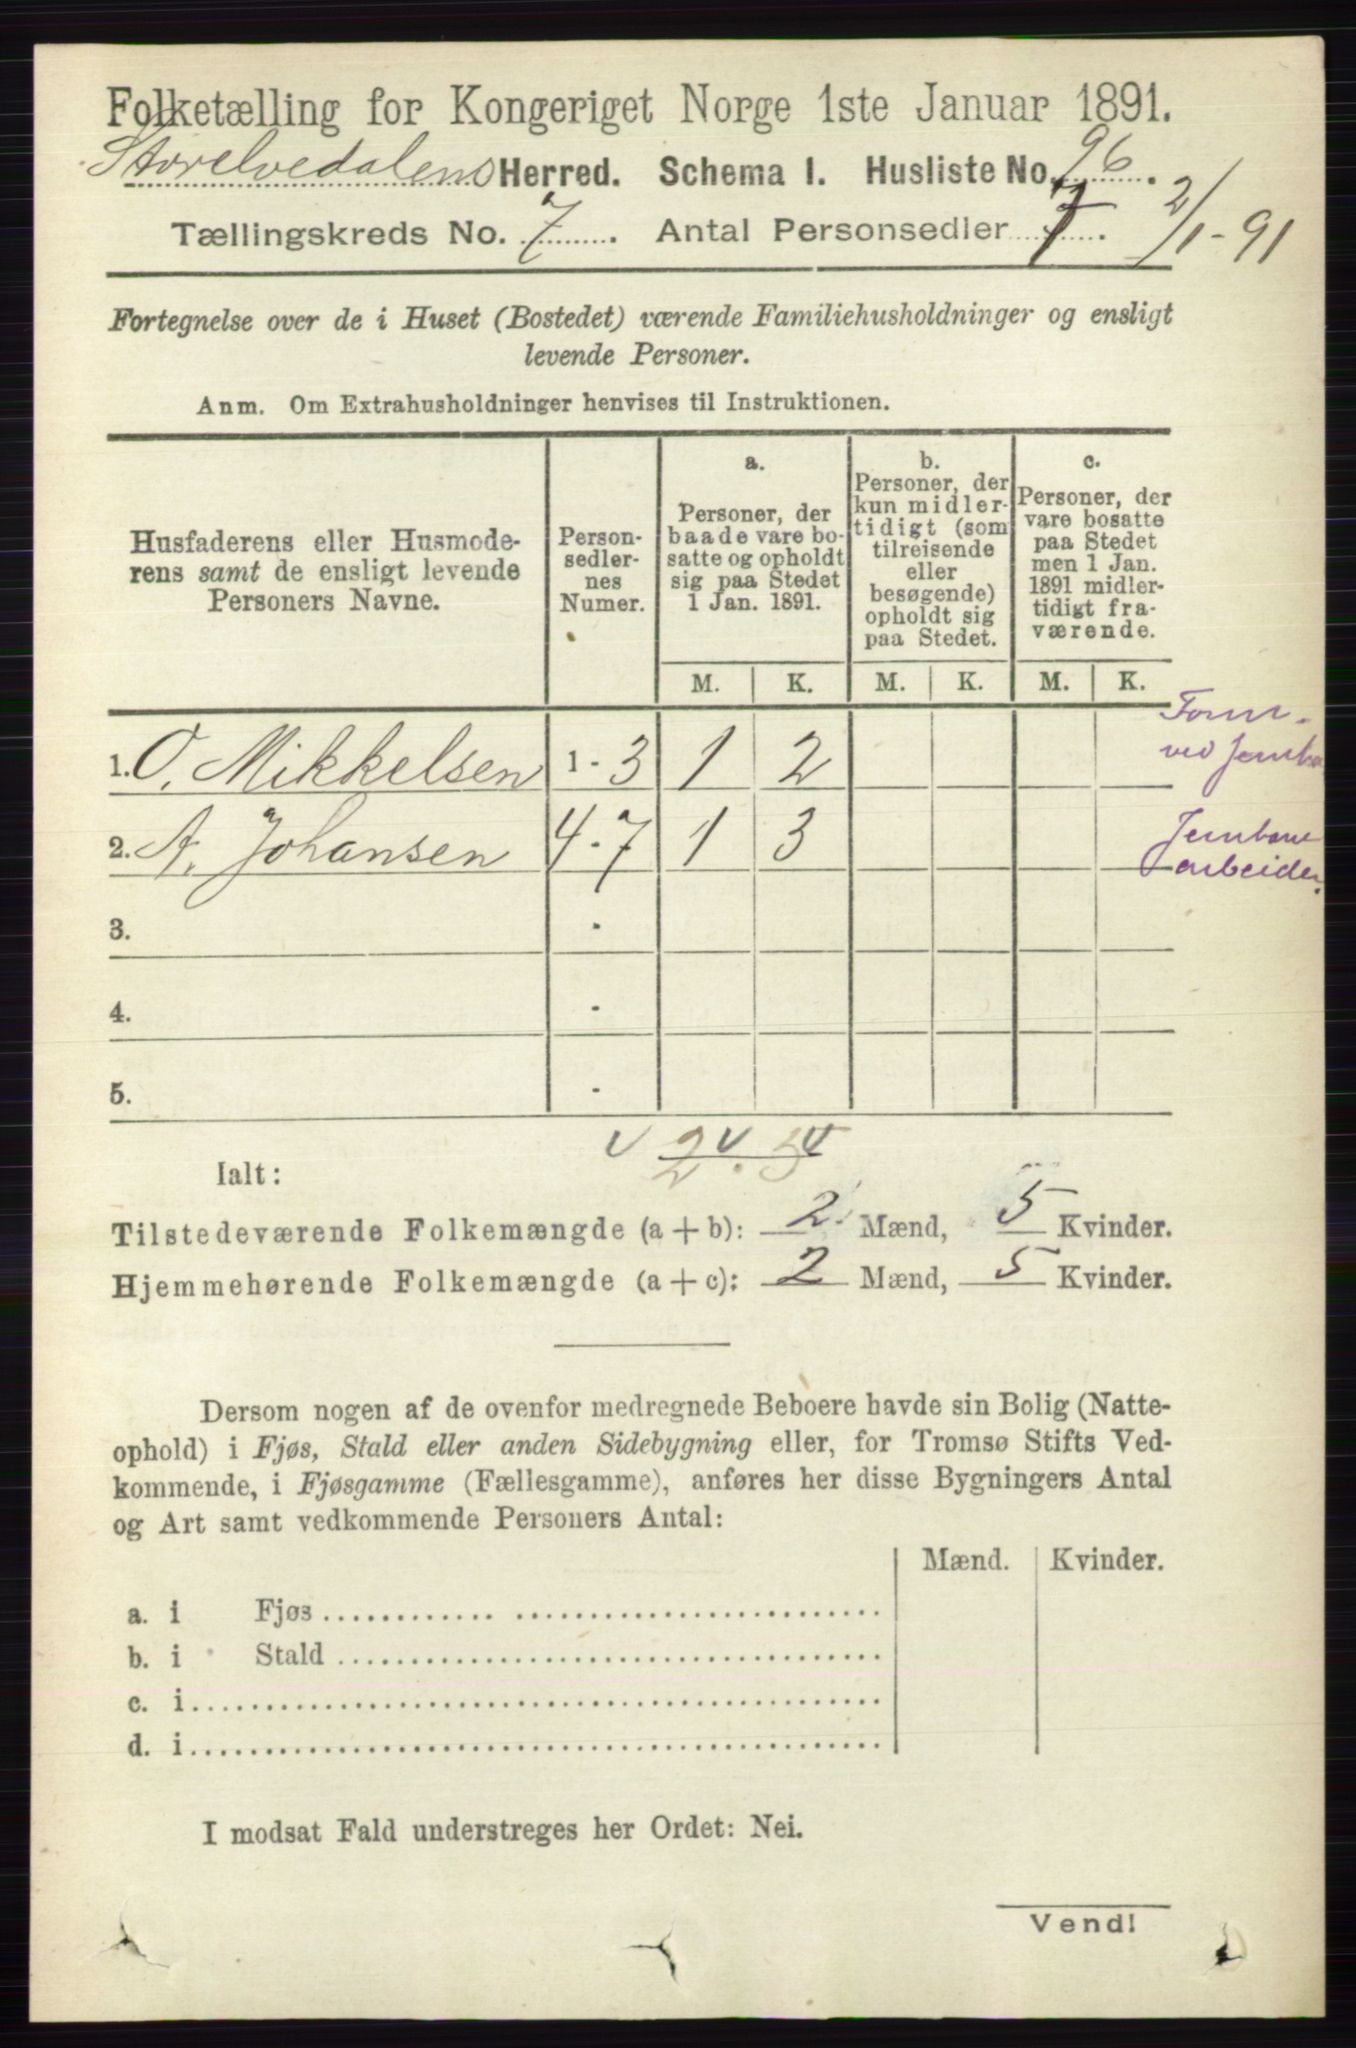 Folketælling for Kongeriget Norge 1ste Januar 1891.
Storelvedalens Herred. Schema I. Husliste No. 96.
Tællingskreds No. 7. Antal Personsedler 7. 2/1-91
Fortegnelse over de i Huset (Bostedet) værende Familiehusholdninger og ensligt
levende Personer.
Anm. Om Extrahusholdninger henvises til Instruktionen.
Husfaderens eller Husmode-
rens samt de ensligt levende
Personers Navne.
Person-
sedler-
nes
Numer.
a.
Personer, der
baade vare bo-
satte og opholdt
sig paa Stedet
1 Jan. 1891.
b.
Personer, der
kun midler-
tidigt (som
tilreisende
eller
besøgende)
opholdt sig
paa Stedet.
c.
Personer, der
vare bosatte
paa Stedet
men 1 Jan.
1891 midler-
tidigt fra-
værende.
M. K. M. K. M. K.
1. O. Mikkelsen 1-3 1 2
Form.
ved
2. A. Johansen 4-7 1 3
Jernbane
arbeider.
3. -
4. -
5. -
Ialt:
2. 5
Tilstedeværende Folkemængde (a + b): 2 Mænd, 5 Kvinder.
Hjemmehørende Folkemængde (a + c): 2 Mænd, 5 Kvinder.
Dersom nogen af de ovenfor medregnede Beboere havde sin Bolig (Natte-
ophold) i Fjøs, Stald eller anden Sidebygning eller, for Tromsø Stifts Ved-
kommende, i Fjøsgamme (Fællesgamme), anføres her disse Bygningers Antal
og Art samt vedkommende Personers Antal:
Mænd. Kvinder.
a. i Fjøs
b. i Stald
c. i
d. i
I modsat Fald understreges her Ordet: Nei.
Vend!